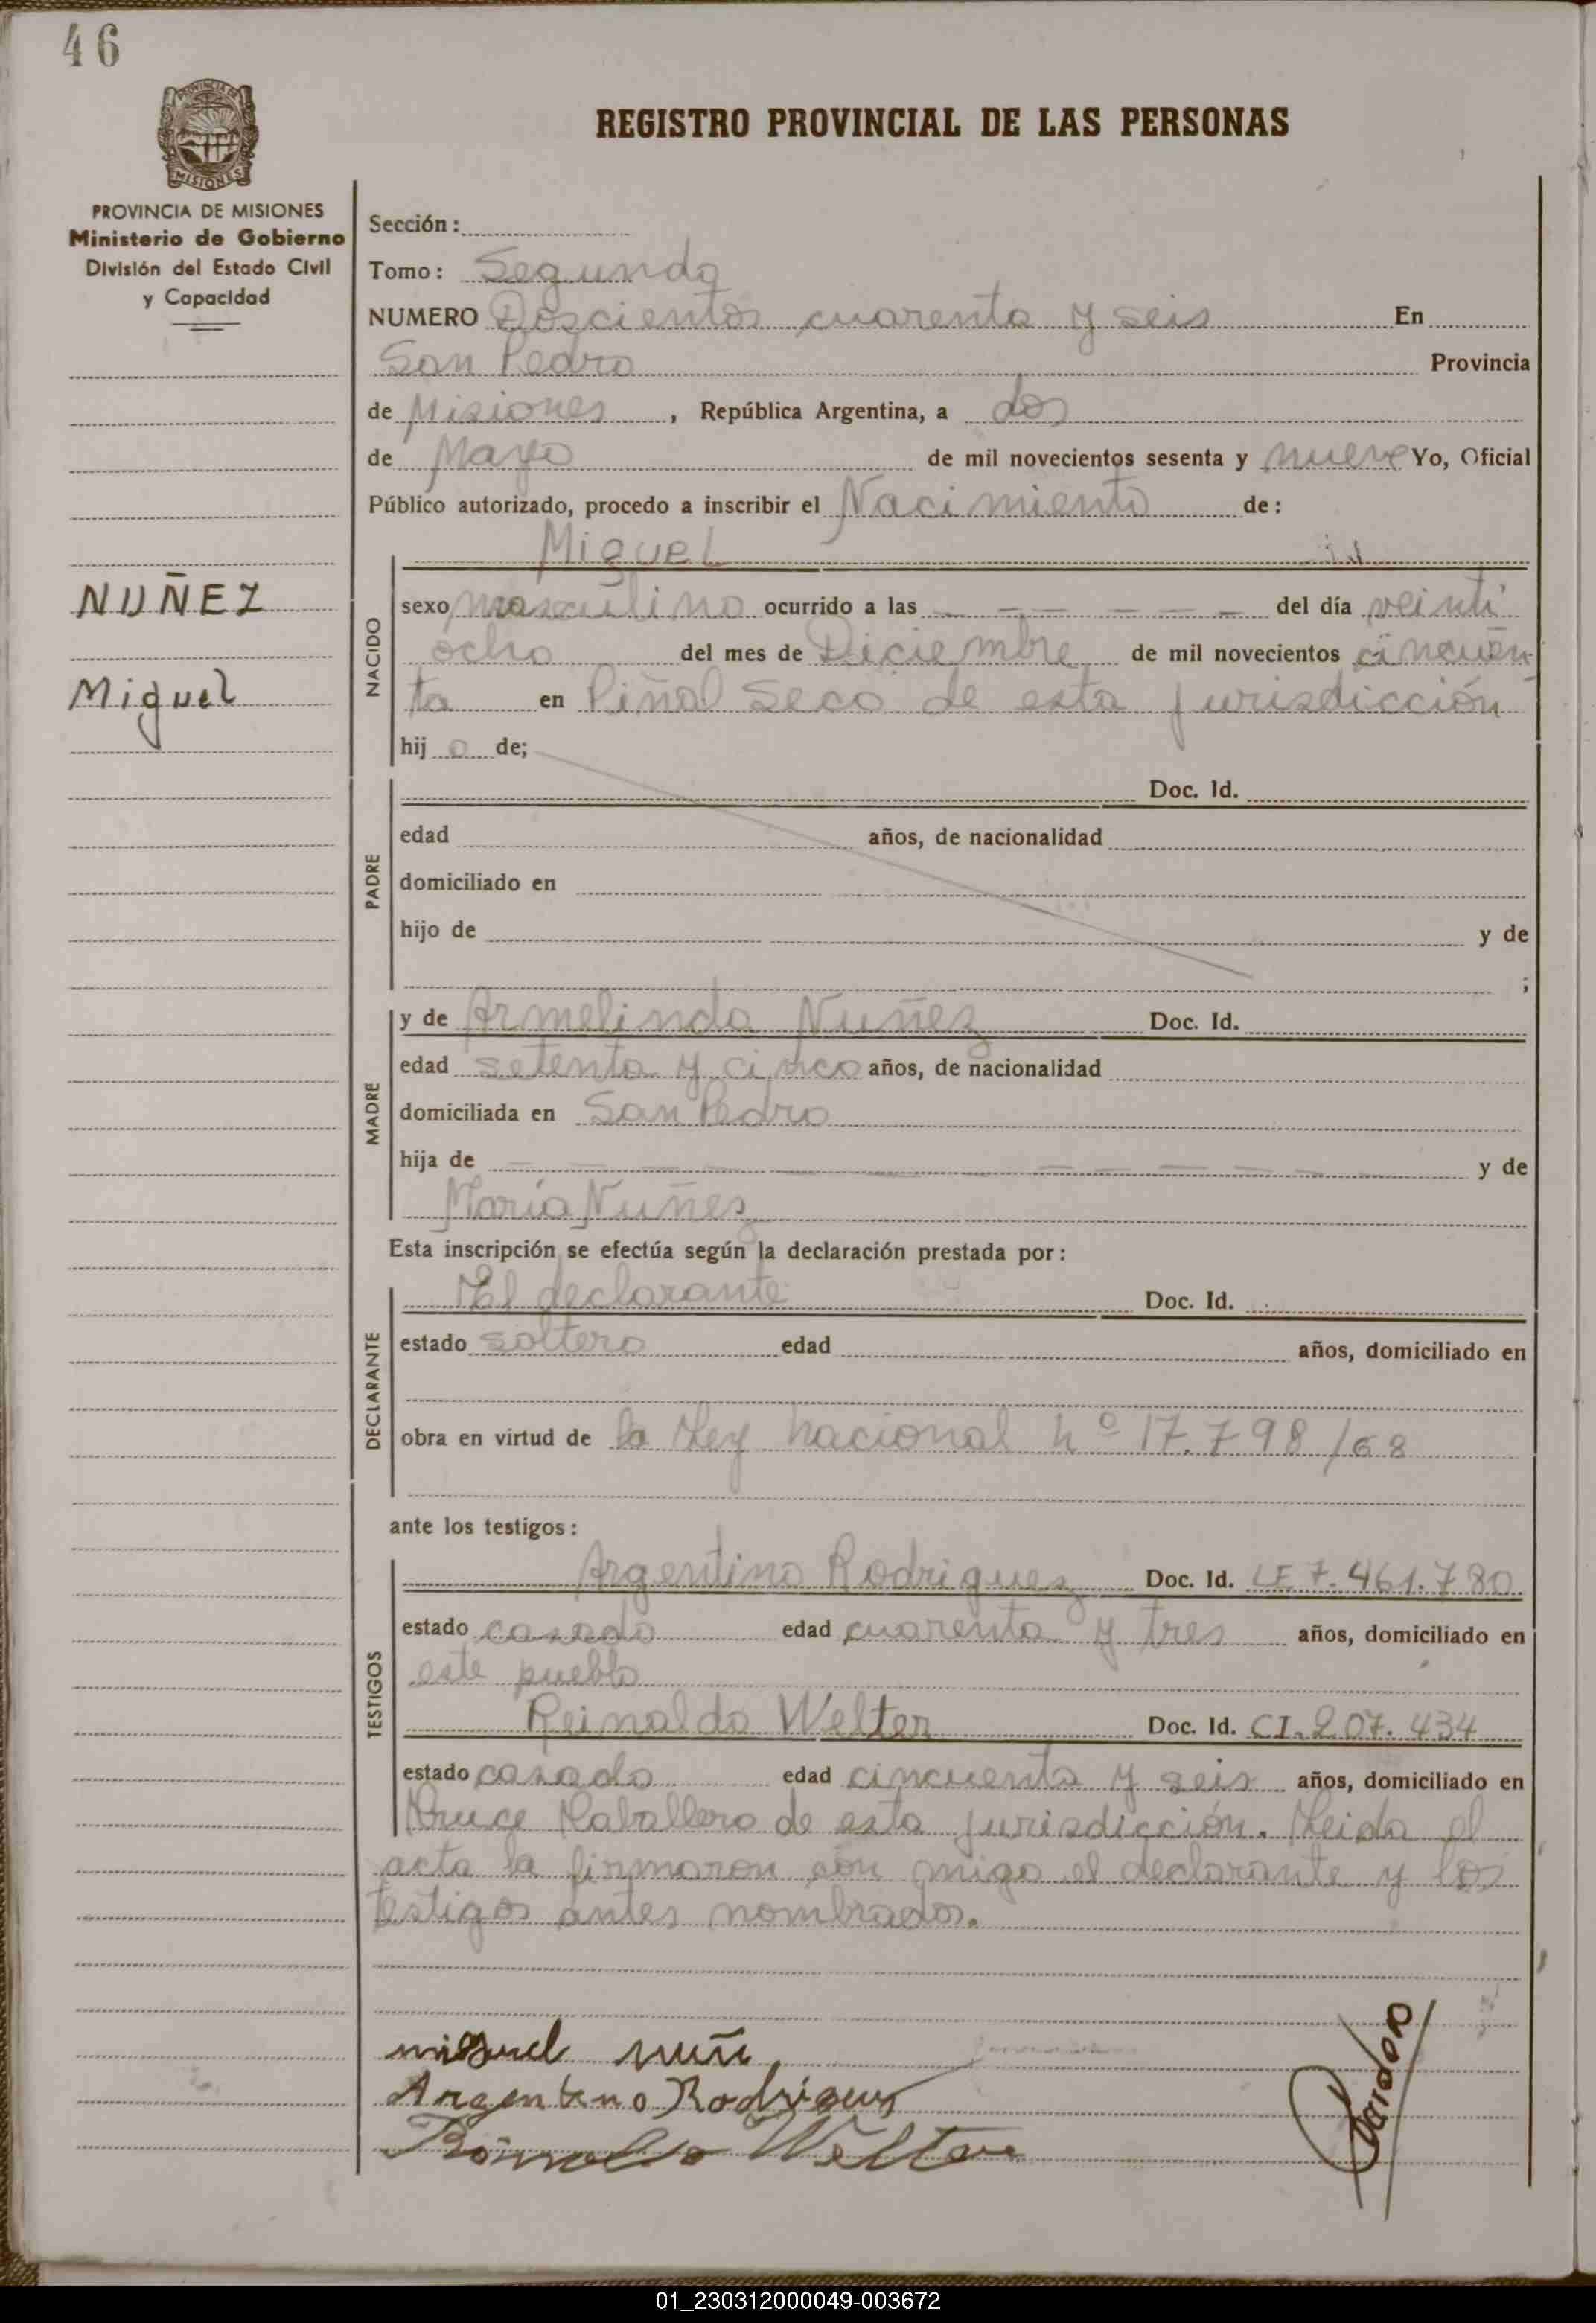 46
PROVINCIA DE MISIONES
REGISTRO PROVINCIAL DE LAS PERSONAS
PROVINCIA DE MISIONES
Ministerio de Gobierno
División del Estado Civil
y Capacidad
Sección:
Tomo: Segundo
NUMERO Doscientos cuarenta y seis En
San Pedro Provincia
de Misiones, República Argentina, a dos
de Mayo de mil novecientos sesenta y nueve Yo, Oficial
Público autorizado, procedo a inscribir el Nacimiento de:
Miguel
NUÑEZ
Miguel
NACIDO
sexo masculino ocurrido a las — — — — — — del día veinti
ocho del mes de Diciembre de mil novecientos cincuen
ta en Piñal Seco de esta jurisdicción
hij o de;
PADRE
Doc. Id.
edad años, de nacionalidad
domiciliado en
hijo de y de
;
MADRE
y de Armelinda Nuñez Doc. Id.
edad setenta y cinco años, de nacionalidad
domiciliada en San Pedro
hija de — — — — — — — — — — y de
María Nuñez
Esta inscripción se efectúa según la declaración prestada por:
DECLARANTE
El declarante Doc. Id.
estado soltero edad años, domiciliado en
obra en virtud de la Ley nacional nº 17.798/68
ante los testigos:
TESTIGOS
Argentino Rodriguez Doc. Id. LE 7.461.780
estado casado edad cuarenta y tres años, domiciliado en
este pueblo
Reinaldo Welter Doc. Id. CI.207.434
estado casado edad cincuenta y seis años, domiciliado en
Cruce Caballero de esta jurisdicción. Leida el
acta la firmaron con migo el declarante y los
testigos antes nombrados.
miguel nuñ
Argentino Rodrigues
Welter
01_230312000049-003672